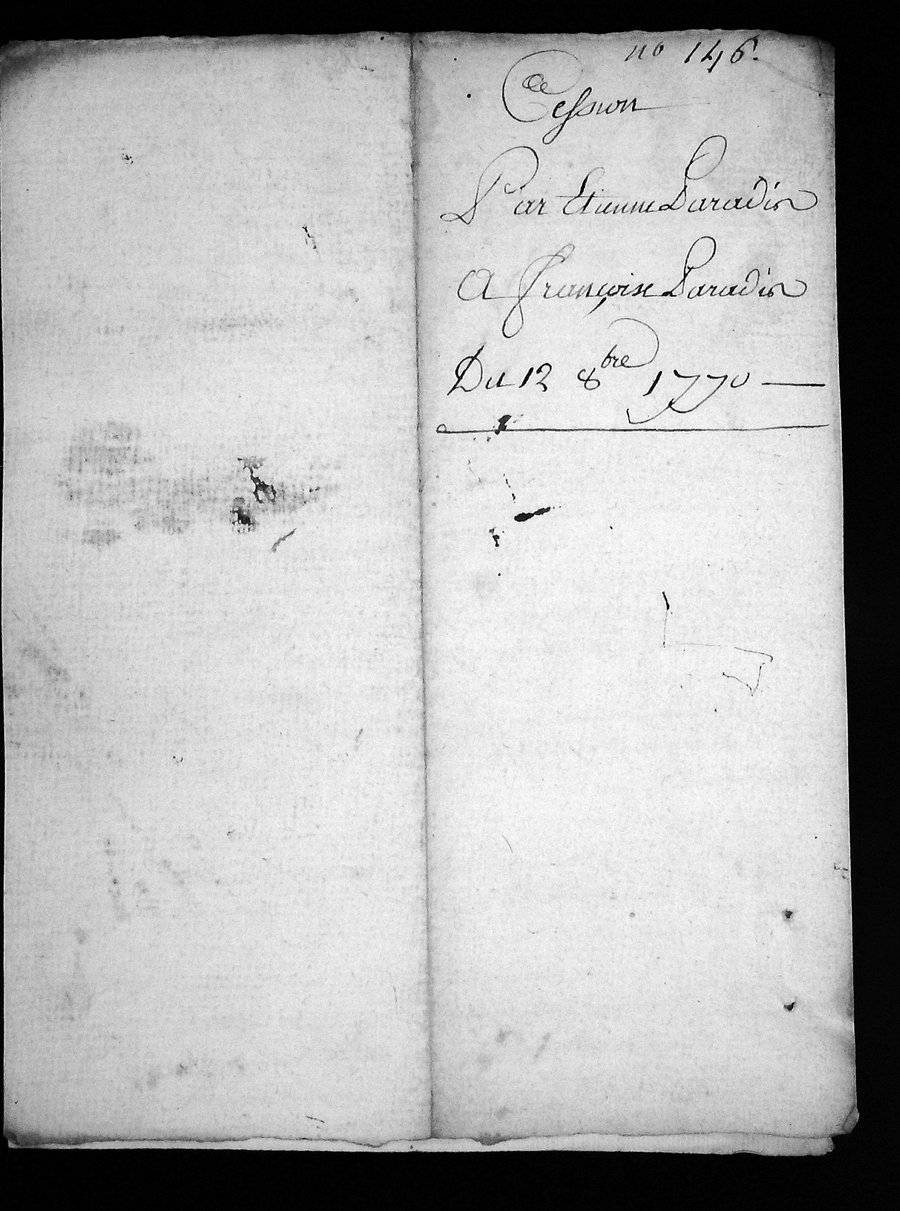 no 146.
Cession
Par Etienne Paradis
A françoise Paradis
Du 12 8bre 1770